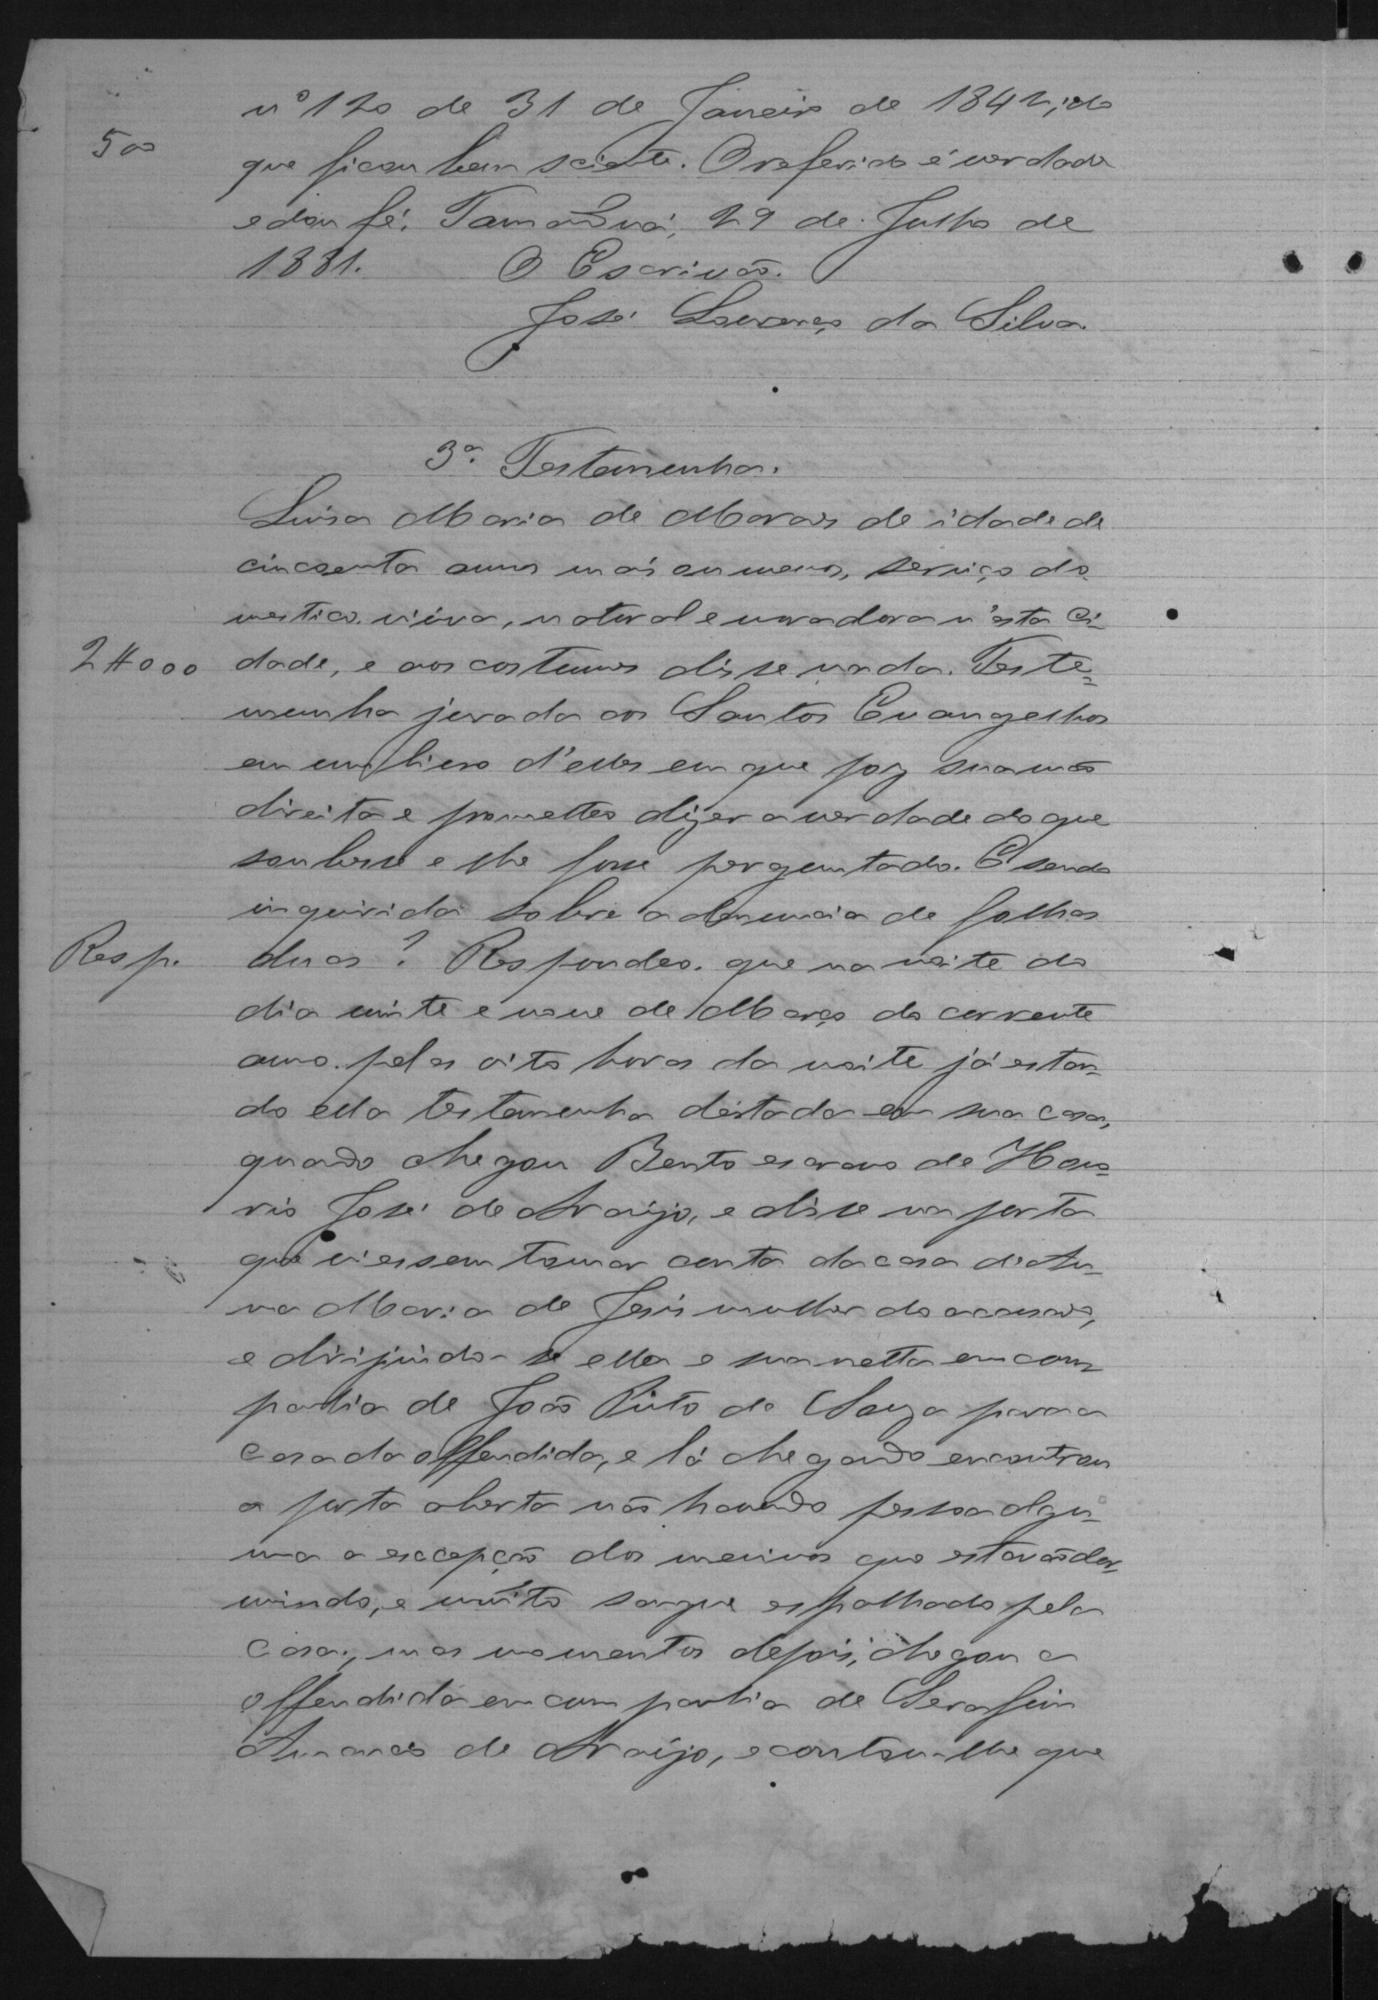 nº 120 de 31 de Janeiro de 1842, do
500
que ficou bem sciente. O referido é verdade
e dou fé. Tamanduá, 29 de Julho de
1881. O Escrivão.
José Lourenço da Silva.
3ª. Testamunha.
Luisa Maria de Morais de idade de
cincoenta annos mais ou menos, serviço do
mestico. viuva, natural e moradora n'esta Ci-
2#000
dade, e aos costumes disse nada. Teste-
munha jurada aos Santos Evangelhos
em um livro d'elles em que poz sua mão
direita e prometteo dizer a verdade do que
soubesse e lhe fosse perguntado. E sendo
inquirida sobre a denuncia de folhas
Resp.
duas? Respondeo. que na noite do
dia vinte e nove de Março do corrente
anno. pelas oito horas da noite já estan-
do ella testamunha deitada em sua casa,
quando chegou Bento escravo de Hono-
rio José de Araújo, e disse na porta
que viessem tomar conta da casa de An-
na Maria de Jesús mulher do accusado,
e dirijindo-se ella e sua netta em com
panhia de João Pinto de Souza para a
casa da offendida, e lá chegando encontrou
a porta aberta não havendo pessoa algu-
ma a excepção dos meninos que estavão dor-
mindo, e muito sangue espalhado pela
casa; mas momentos depois, chegou a
offendida em companhia de Serafim
Antunes de Araújo, e contou-lhe que